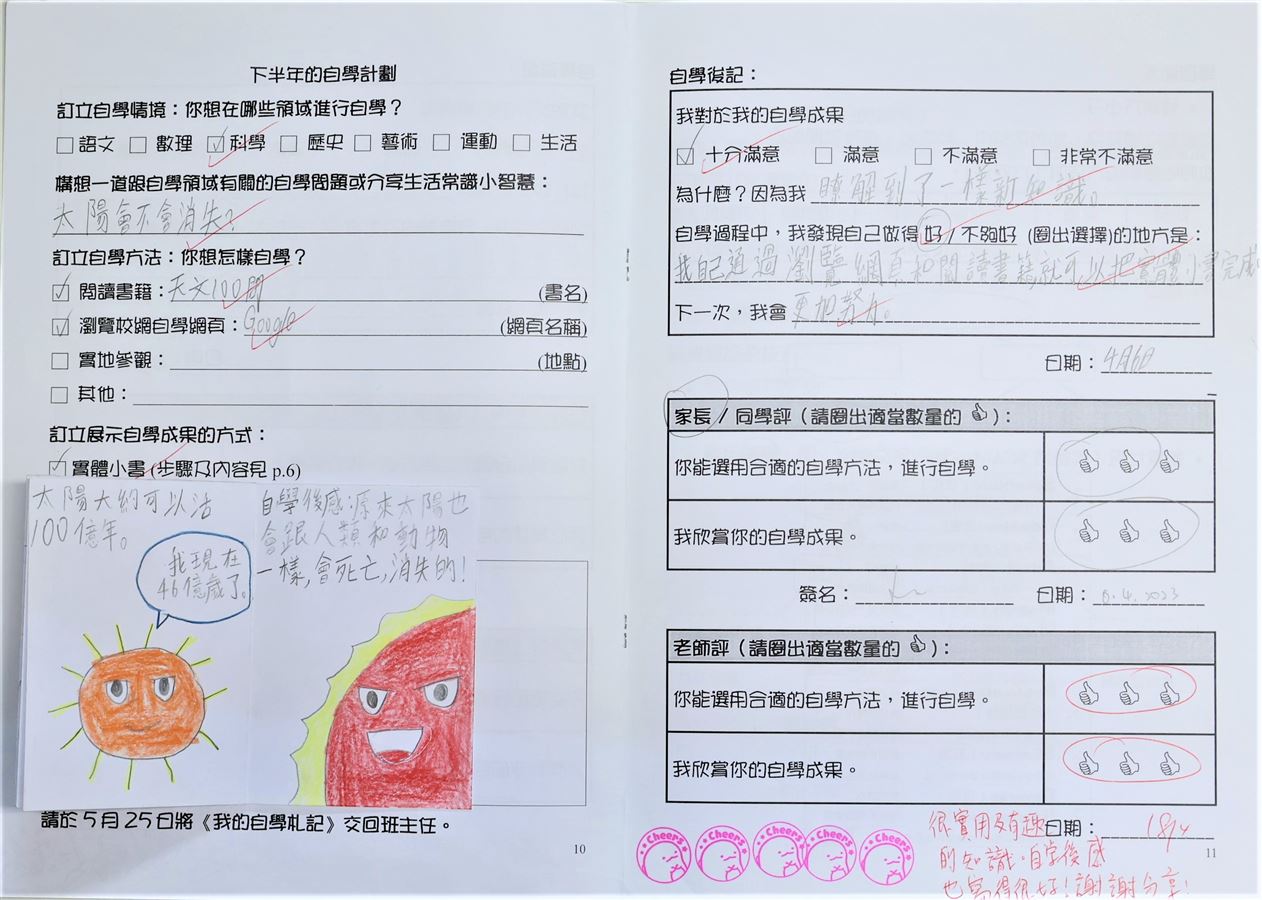 下半年的自學計劃
訂立自學情境：你想在哪些領域進行自學？
□語文 □數理 ☑科學 □歷史 □藝術 □運動 □生活
構想一道跟自學領域有關的自學問題或分享生活常識小智慧：
太陽會不會消失？
訂立自學方法：你想怎樣自學？
☑ 閱讀書籍：天文100問 (書名)
☑ 瀏覽校網自學網頁：Google (網頁名稱)
□ 實地參觀： (地點)
□ 其他：
訂立展示自學成果的方式：
☑ 實體小書 (步驟及內容見 p.6)
太陽大約可以活
100億年。
我現在
46億歲了。
自學後感：原來太陽也
會跟人類和動物
一樣，會死亡，消失的！
請於5月25日將《我的自學札記》交回班主任。
10
自學後記：
我對於我的自學成果
☑ 十分滿意 □ 滿意 □ 不滿意 □ 非常不滿意
為什麼？因為我 瞭解到了一樣新知識。
自學過程中，我發現自己做得 好 / 不夠好 (圈出選擇)的地方是：
我自己通過瀏覽網頁和閱讀書籍就可以把實體小書完成
下一次，我會 更加努力。
日期：4月6日
家長 / 同學評（請圈出適當數量的 👍）：
你能選用合適的自學方法，進行自學。 👍 👍 👍
我欣賞你的自學成果。 👍 👍 👍
簽名： 日期：6.4.2023
老師評（請圈出適當數量的 👍）：
你能選用合適的自學方法，進行自學。 👍 👍 👍
我欣賞你的自學成果。 👍 👍 👍
日期：18/4
很實用及有趣
的知識，自學後感
也寫得很好！謝謝分享！
Cheers Cheers Cheers Cheers Cheers
11